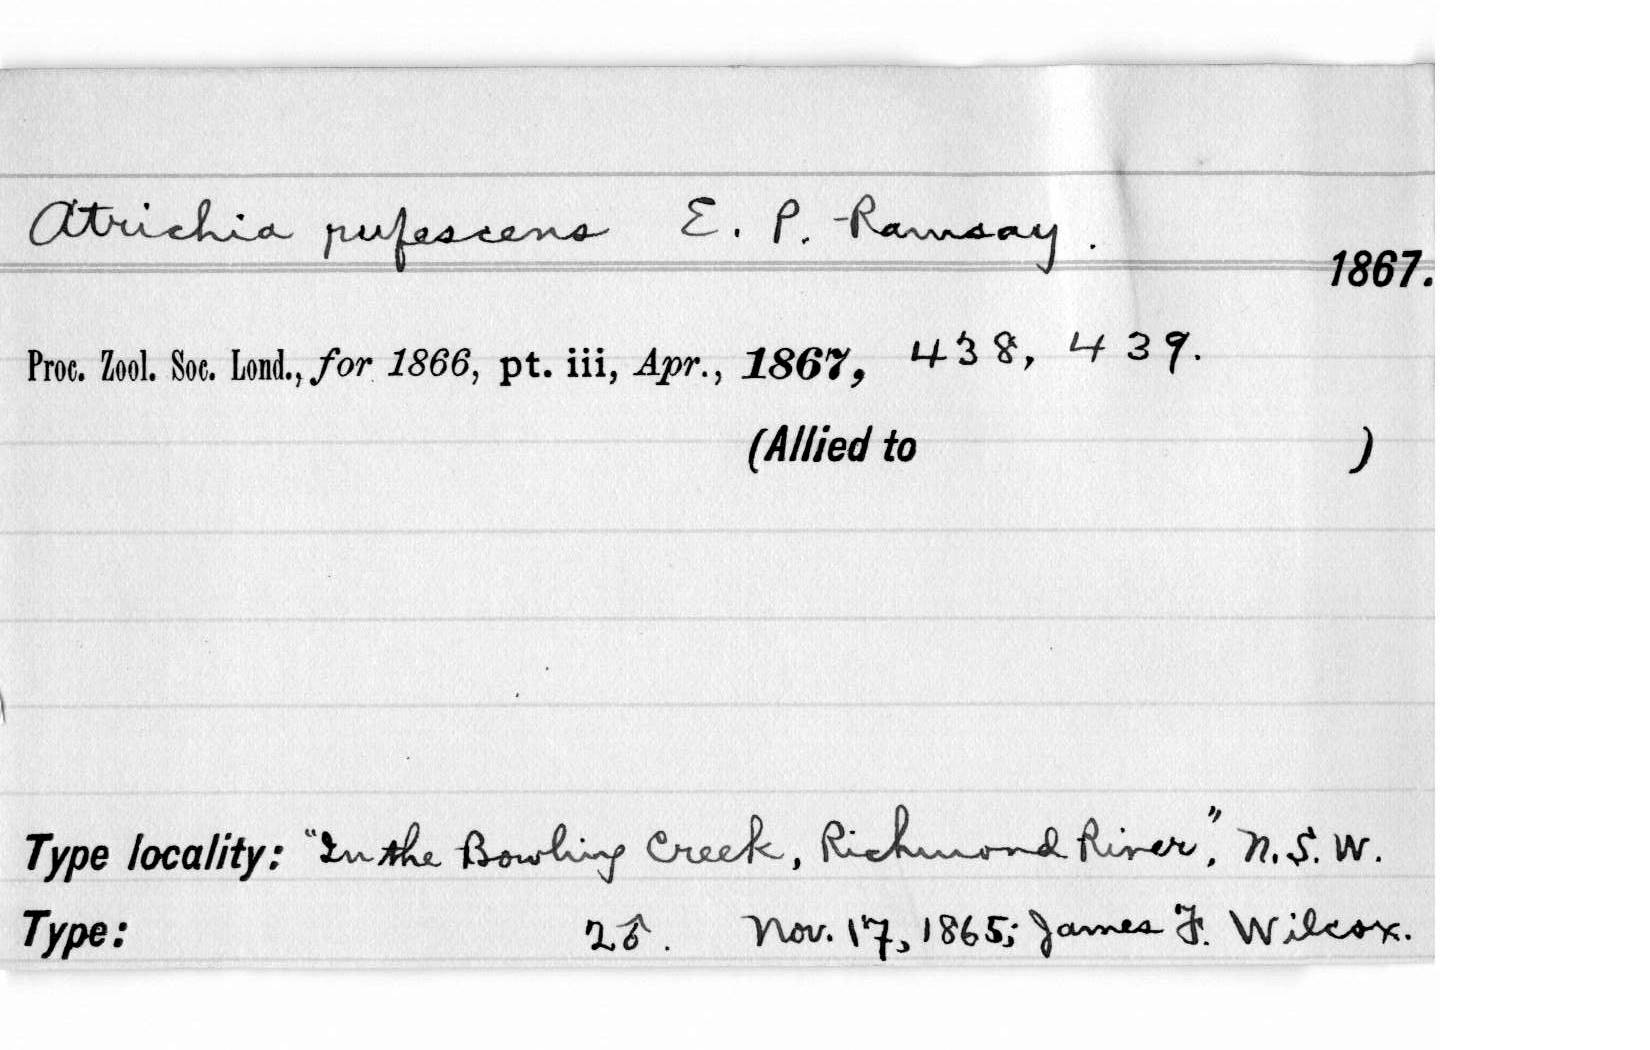 Atrichia rufescens E. P. Ramsay.
1867.
Proc. Zool. Soc. Lond., for 1866, pt. iii, Apr., 1867, 438, 439.
(Allied to )
Type locality: "In the Bowling Creek, Richmond River", N. S. W.
Type: 2♂. Nov. 17, 1865; James F. Wilcox.